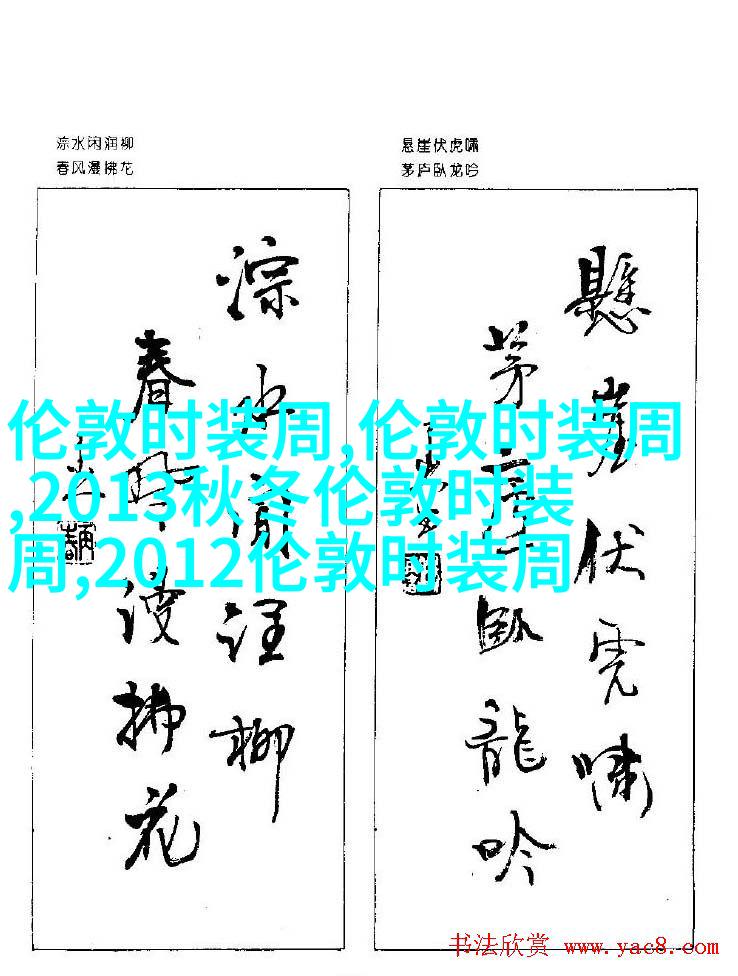 淙水闲润柳
春风漫拂花
悬崖伏虎啸
茅庐卧龙吟
淙水闲润柳
春风漫拂花
懸崖伏虎啸
茅庐卧龍吟
伦敦时装周,伦敦时装周
,2013秋冬伦敦时装
周,2012伦敦时装周
书法欣赏 www.yac8.com